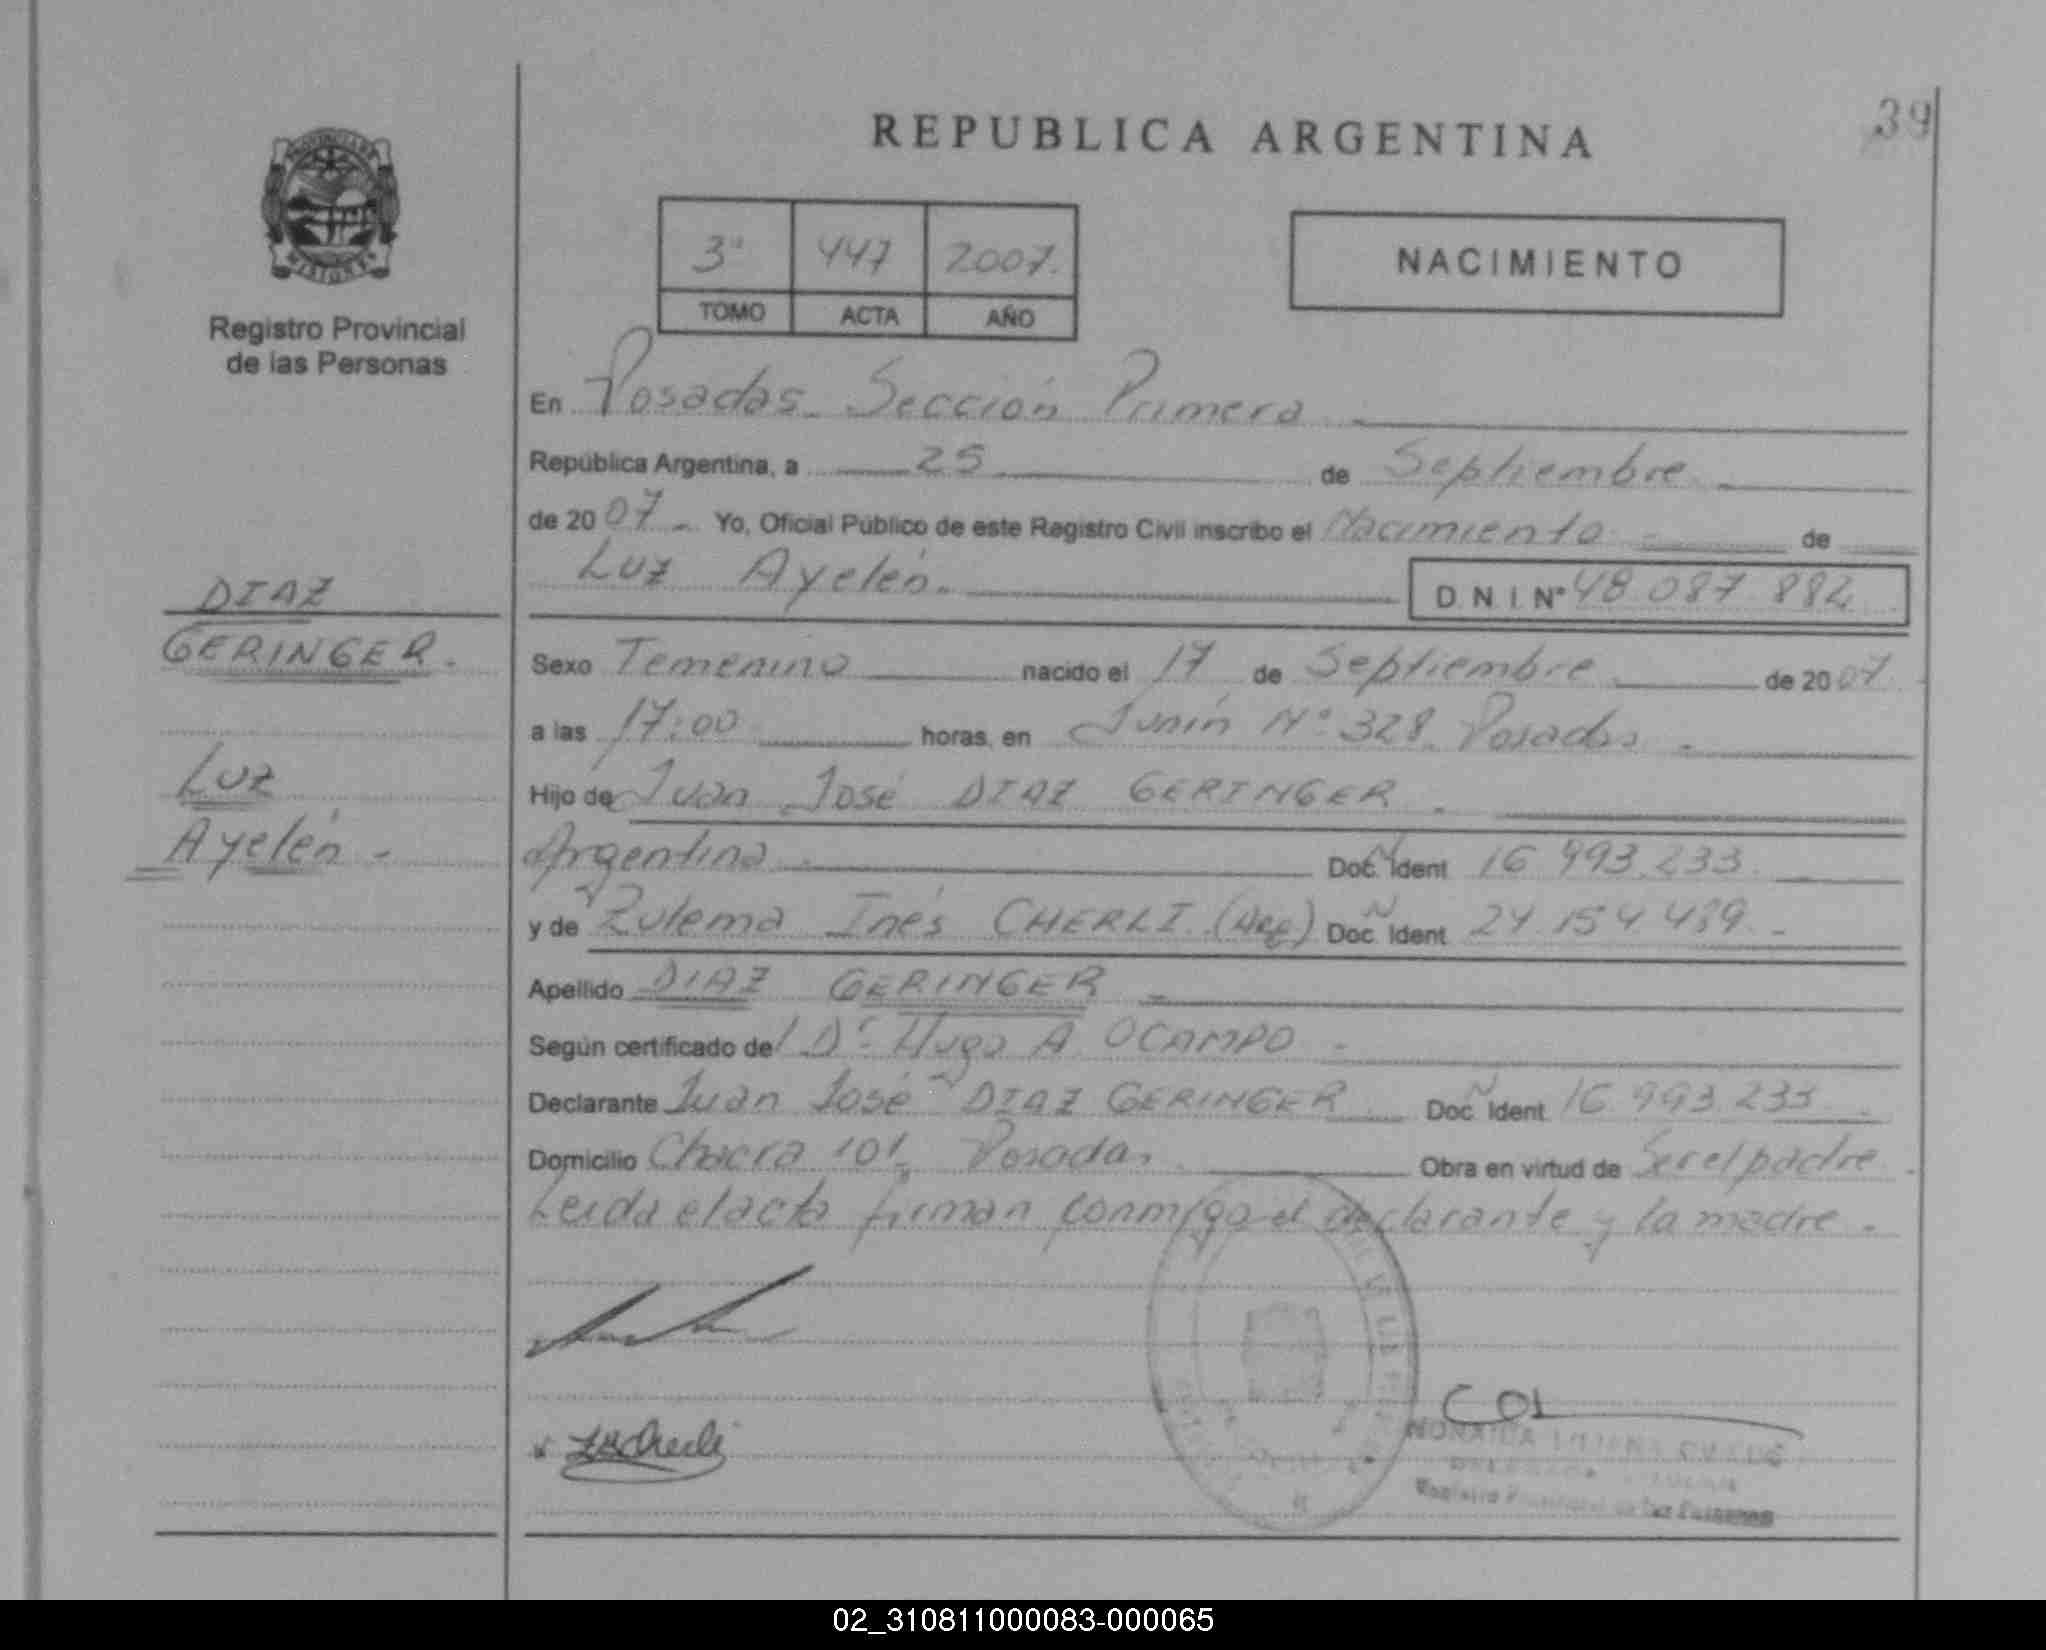 39
REPUBLICA ARGENTINA
PROVINCIA DE MISIONES
Registro Provincial
de las Personas
3º 447 2007.
TOMO ACTA AÑO
NACIMIENTO
En Posadas. Sección Primera
República Argentina, a 25 de Septiembre
de 2007 - Yo, Oficial Público de este Registro Civil inscribo el Nacimiento de
Luz Ayelén. D.N.I. Nº 48 087 884
DIAZ
GERINGER.
Luz
Ayelén -
Sexo Femenino nacido el 17 de Septiembre de 2007
a las 17:00 horas, en Junín Nº 328. Posadas -
Hijo de Juan José DIAZ GERINGER.
Argentina Doc. Ident N 16 993.233.
y de Zulema Inés CHERLI. (Arg) Doc. Ident N 24 154 489 -
Apellido DIAZ GERINGER -
Según certificado del Dr. Hugo A. OCAMPO -
Declarante Juan José DIAZ GERINGER Doc. Ident N 16 993 233
Domicilio Chacra 101, Posadas Obra en virtud de Ser el padre.
Leída el acta firman conmigo el declarante y la madre.
Registro Provincial de las Personas
02_310811000083-000065